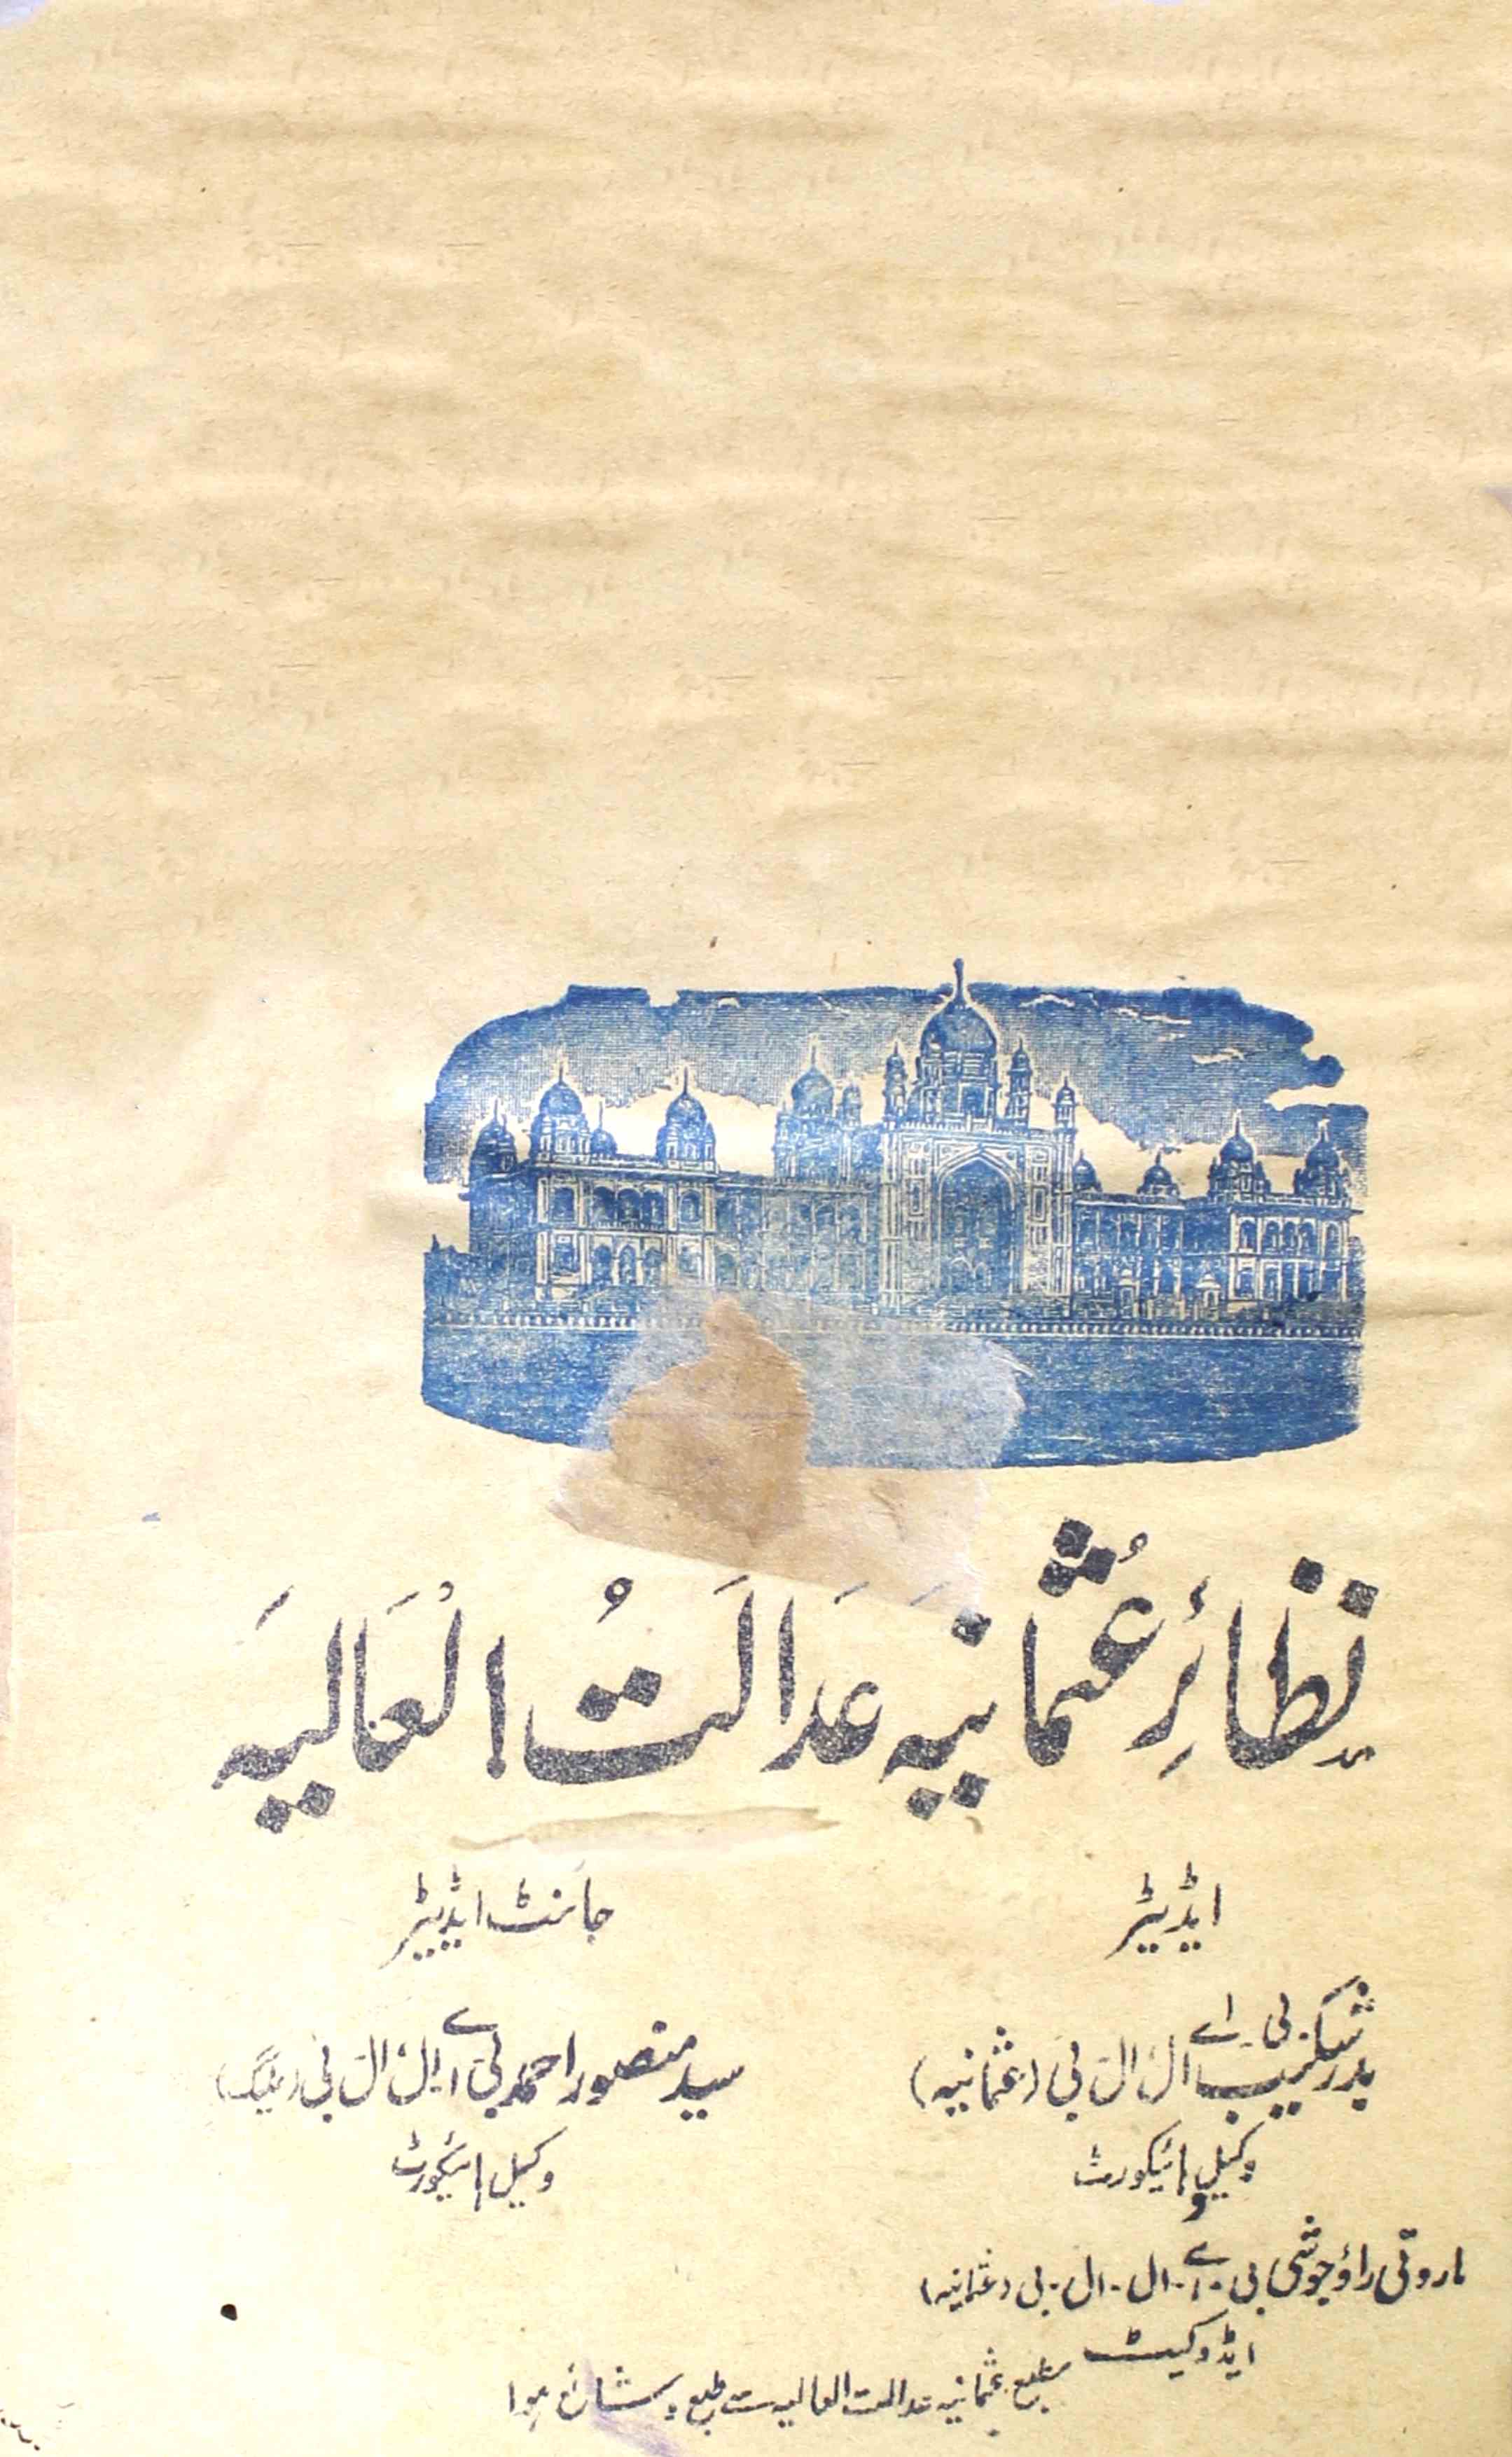 نظائرِ عُثمانیہ عَدَالَتُ الْعَالیَہ
ایڈیٹر
بدر شکیب بی۔اے ال ال بی (عثمانیہ)
وکیل ہائیکورٹ
و
ماروتی راؤ جوشی بی۔اے۔ال۔ال۔بی (عثمانیہ)
ایڈوکیٹ
جائنٹ ایڈیٹر
سید منصور احمد بی اے۔ال ال بی (علیگ)
وکیل ہائیکورٹ
مطبع عثمانیہ عدالت العالیہ سے طبع و شائع ہوا